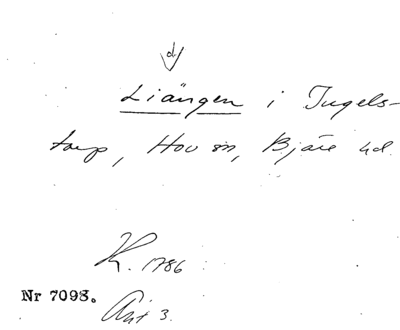 d
Liängen i Ingels-
torp, Hov sn, Bjäre hd.
K. 1786
Nr 7098.
Akt 3.